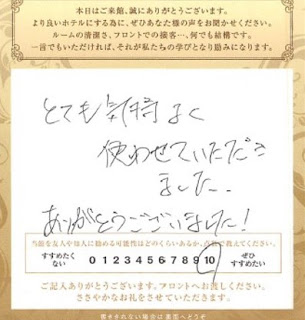 本日はご来館、誠にありがとうございます。
より良いホテルにする為に、ぜひあなた様の声をお聞かせください。
ルームの清潔さ、フロントでの接客…、何でも結構です。
一言でもいただければ、それが私たちの学びとなり励みになります。
とても気持よく
使わせていただき
ました。
ありがとうございました!
当館を友人や知人に勧める可能性はどのくらいあるか、点数で教えてください。
すすめたくない 0 1 2 3 4 5 6 7 8 9 10 ぜひすすめたい
ご記入ありがとうございます。フロントへお渡しください。
ささやかなお礼をさせていただきます。